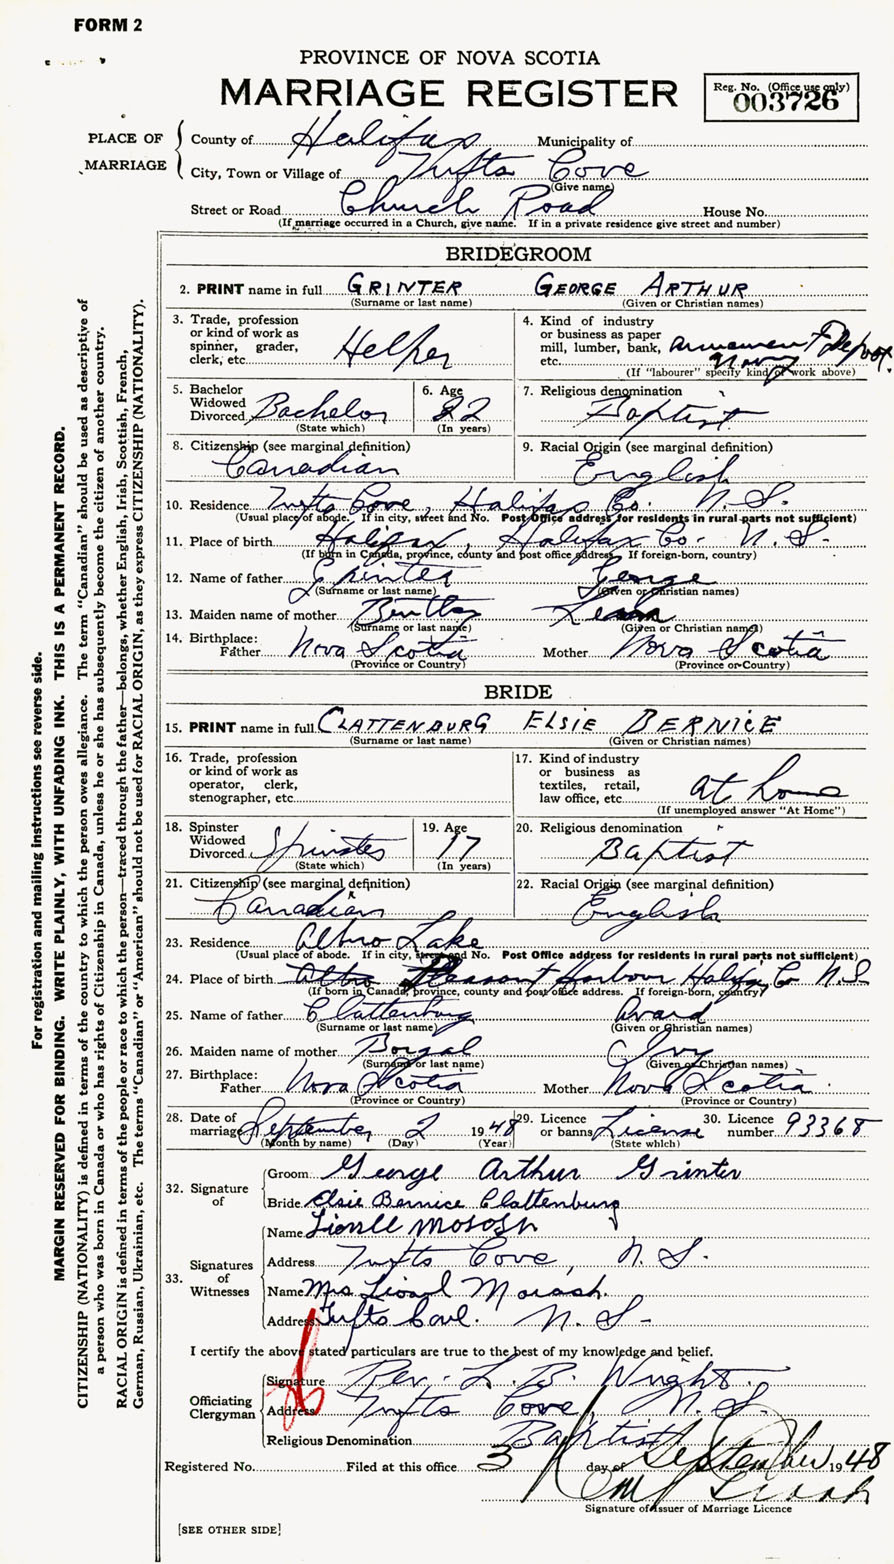 FORM 2
PROVINCE OF NOVA SCOTIA
MARRIAGE REGISTER
Reg. No. (Office use only)
003726
PLACE OF MARRIAGE
County of Halifax Municipality of
City, Town or Village of Tufts Cove
(Give name)
Street or Road Church Road House No.
(If marriage occurred in a Church, give name. If in a private residence give street and number)
BRIDEGROOM
2. PRINT name in full GRINTER GEORGE ARTHUR
(Surname or last name) (Given or Christian names)
3. Trade, profession or kind of work as spinner, grader, clerk, etc. Helper
4. Kind of industry or business as paper mill, lumber, bank, etc. armament Depot. Navy
(If "labourer" specify kind of work above)
5. Bachelor Widowed Divorced Bachelor
(State which)
6. Age 22
(In years)
7. Religious denomination Baptist
8. Citizenship (see marginal definition) Canadian
9. Racial Origin (see marginal definition) English
10. Residence Tufts Cove, Halifax Co. N.S.
(Usual place of abode. If in city, street and No. Post Office address for residents in rural parts not sufficient)
11. Place of birth Halifax, Halifax Co. N.S.
(If born in Canada, province, county and post office address. If foreign-born, country)
12. Name of father Grinter George
(Surname or last name) (Given or Christian names)
13. Maiden name of mother
(Surname or last name) (Given or Christian name)
14. Birthplace:
Father Nova Scotia Mother Nova Scotia
(Province or Country) (Province or Country)
BRIDE
15. PRINT name in full CLATTENBURG ELSIE BERNICE
(Surname or last name) (Given or Christian names)
16. Trade, profession or kind of work as operator, clerk, stenographer, etc.
17. Kind of industry or business as textiles, retail, law office, etc. at home
(If unemployed answer "At Home")
18. Spinster Widowed Divorced Spinster
(State which)
19. Age 17
(In years)
20. Religious denomination Baptist
21. Citizenship (see marginal definition) Canadian
22. Racial Origin (see marginal definition) English
23. Residence Albro Lake
(Usual place of abode. If in city, street and No. Post Office address for residents in rural parts not sufficient)
24. Place of birth Albro Pleasant Harbour Halifax C N.S
(If born in Canada, province, county and post office address. If foreign-born, country)
25. Name of father Clattenburg Avard
(Surname or last name) (Given or Christian names)
26. Maiden name of mother Borgal Ivy
(Surname or last name) (Given or Christian names)
27. Birthplace:
Father Nova Scotia Mother Nova Scotia
(Province or Country) (Province or Country)
28. Date of marriage September 2 1948
(Month by name) (Day) (Year)
29. Licence or banns License
(State which)
30. Licence number 93368
32. Signature of
Groom George Arthur Grinter
Bride Elsie Bernice Clattenburg
33. Signatures of Witnesses
Name
Address Tufts Cove, N.S.
Name Mrs Morash.
Address Tufts Cove. N.S.
I certify the above stated particulars are true to the best of my knowledge and belief.
Officiating Clergyman
Signature Rev. L. B. Wright.
Address Tufts Cove, N.S.
Religious Denomination Baptist
Registered No. Filed at this office 3 day of September 1948
Signature of Issuer of Marriage Licence
[SEE OTHER SIDE]
For registration and mailing instructions see reverse side.
MARGIN RESERVED FOR BINDING. WRITE PLAINLY, WITH UNFADING INK. THIS IS A PERMANENT RECORD.
CITIZENSHIP (NATIONALITY) is defined in terms of the country to which the person owes allegiance. The term "Canadian" should be used as descriptive of
a person who was born in Canada or who has rights of Citizenship in Canada, unless he or she has subsequently become the citizen of another country.
RACIAL ORIGIN is defined in terms of the people or race to which the person—traced through the father—belongs, whether English, Irish, Scottish, French,
German, Russian, Ukrainian, etc. The terms "Canadian" or "American" should not be used for RACIAL ORIGIN, as they express CITIZENSHIP (NATIONALITY).